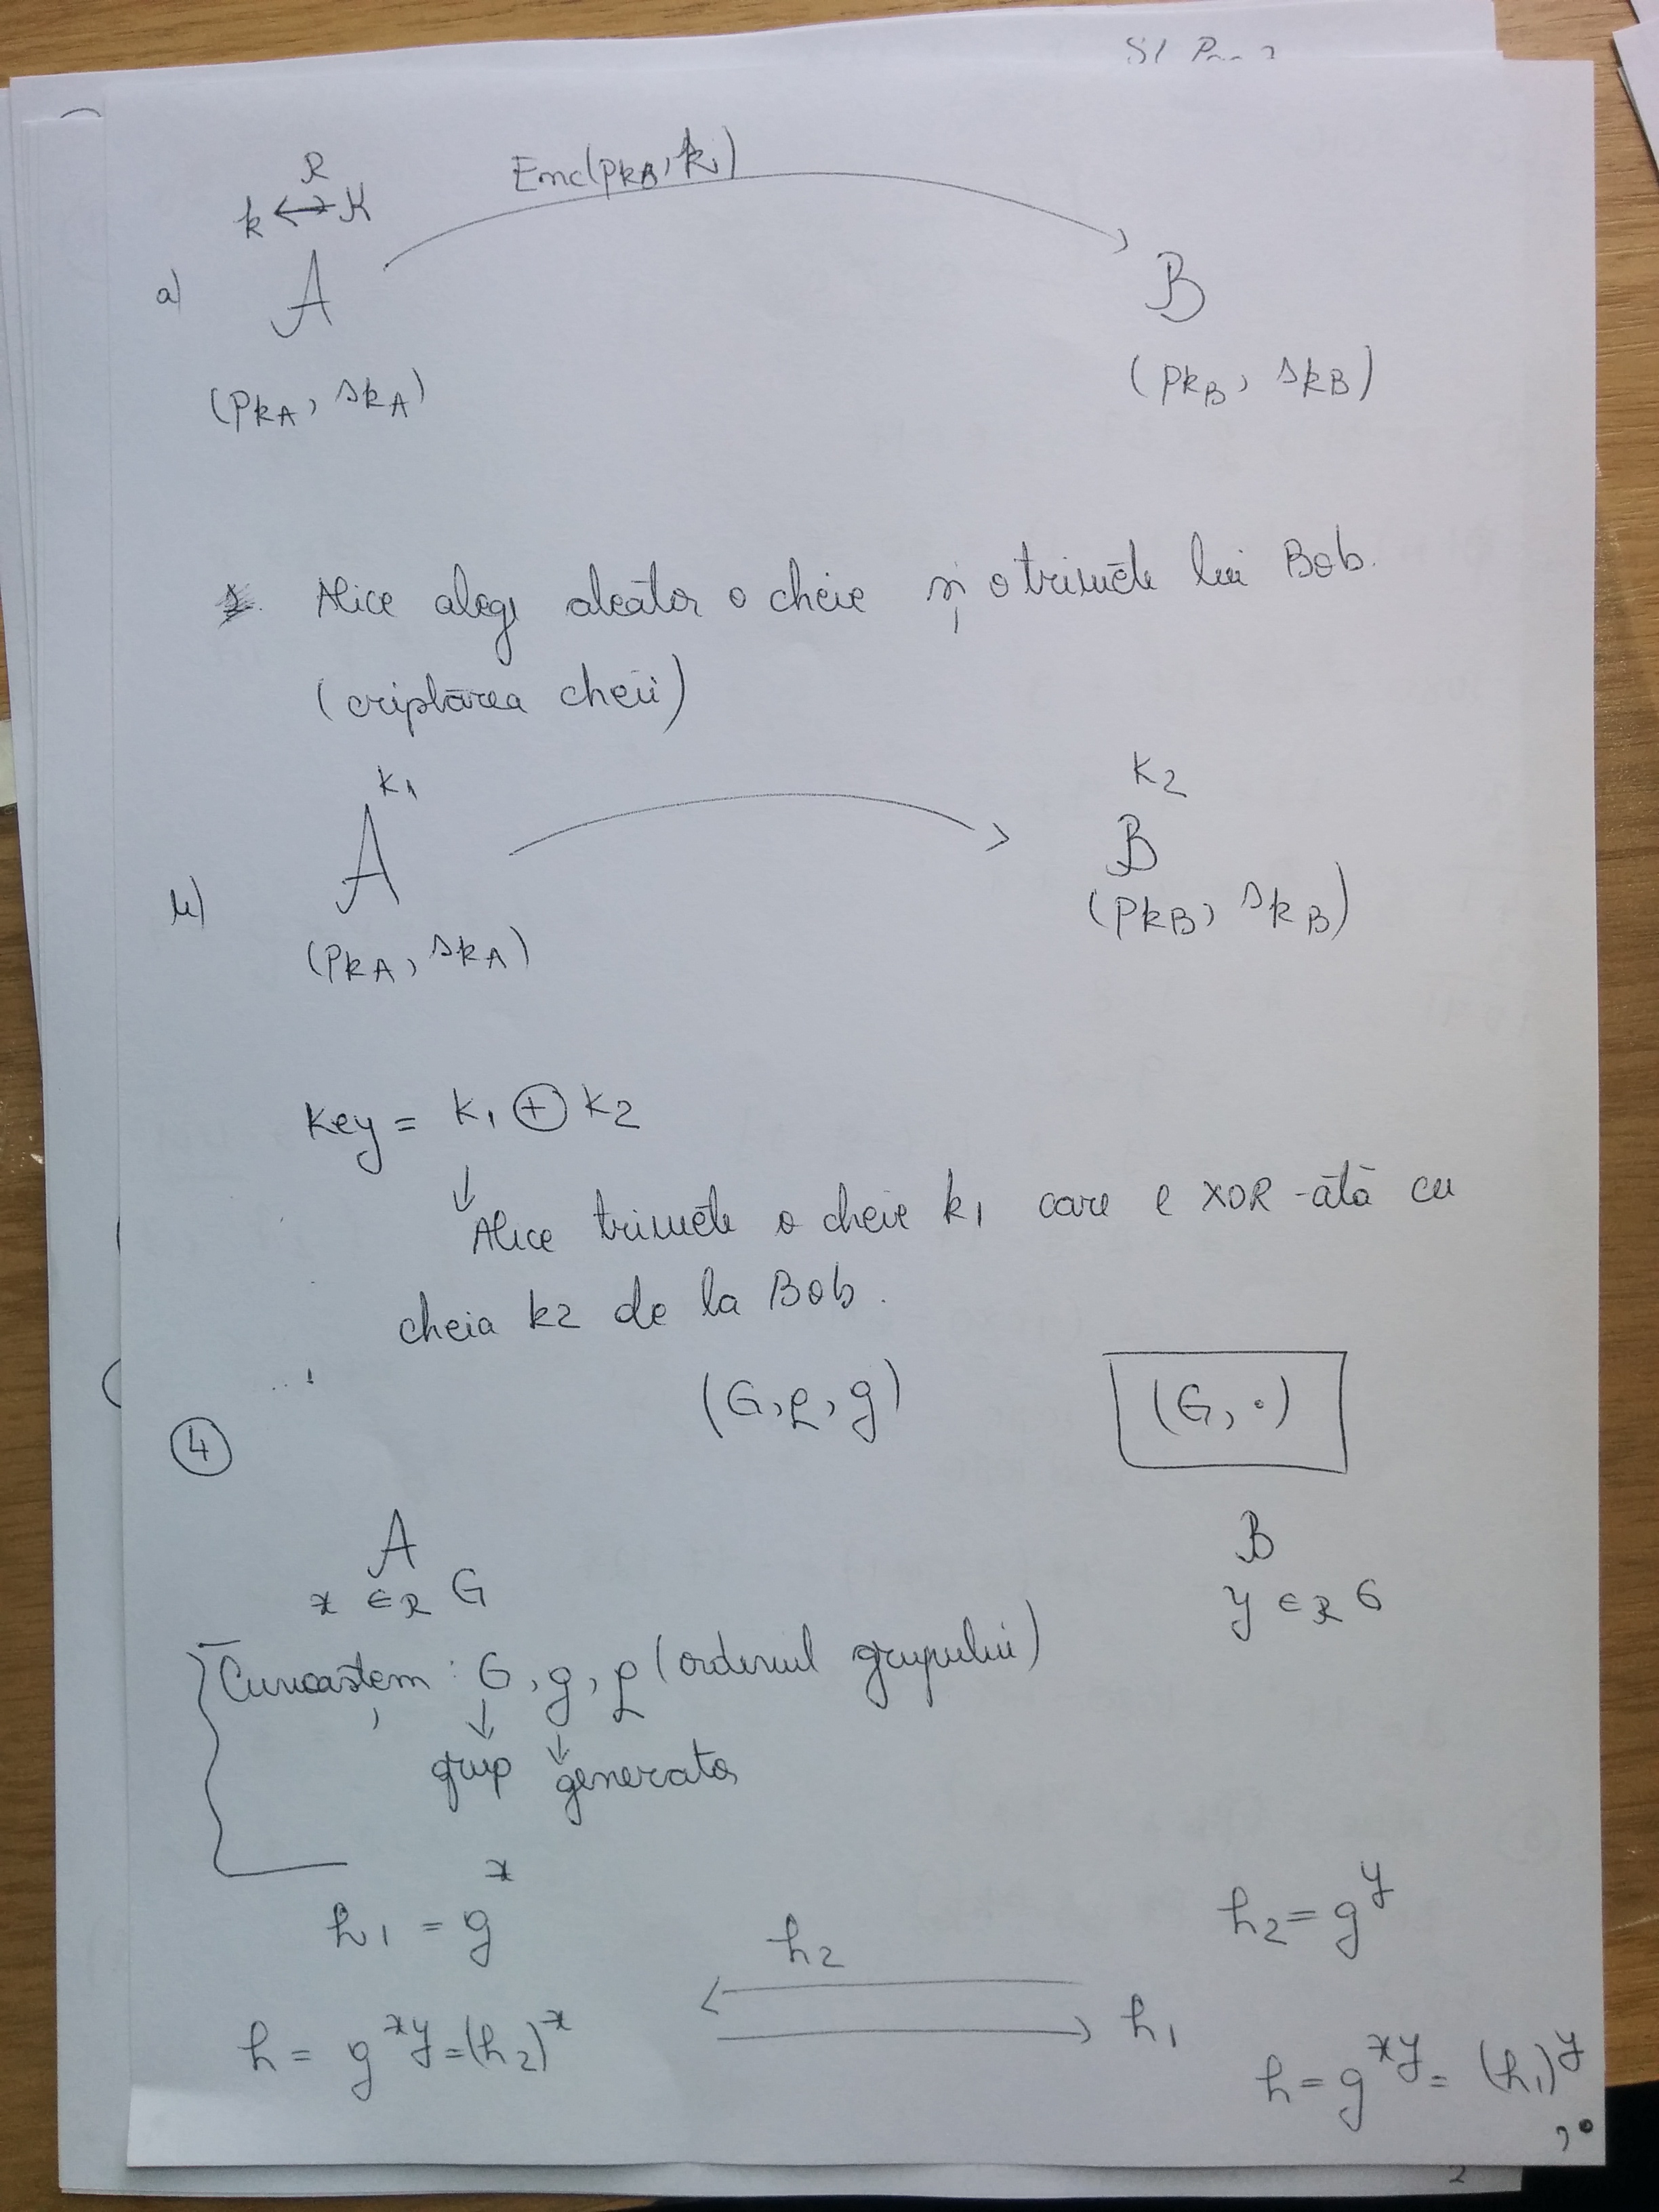 R
k ↔ K
Enc(pkB, k)
a) A B
(pkA, skA) (pkB, skB)
Alice alege aleator o cheie și o trimete lui Bob.
(criptarea cheii)
k1 k2
A B
(pkA, skA) (pkB, skB)
key = k1 ⊕ k2
↓
Alice trimete o cheie k1 care e XOR-ată cu
cheia k2 de la Bob.
(G, q, g) (G, ·)
4
A B
x ∈R G y ∈R G
Cunoaștem: G, g, q (ordinul grupului)
↓ ↓
grup generator
h1 = g^x h2 = g^y
h2
h = g^xy = (h2)^x h1
h = g^xy = (h1)^y
2